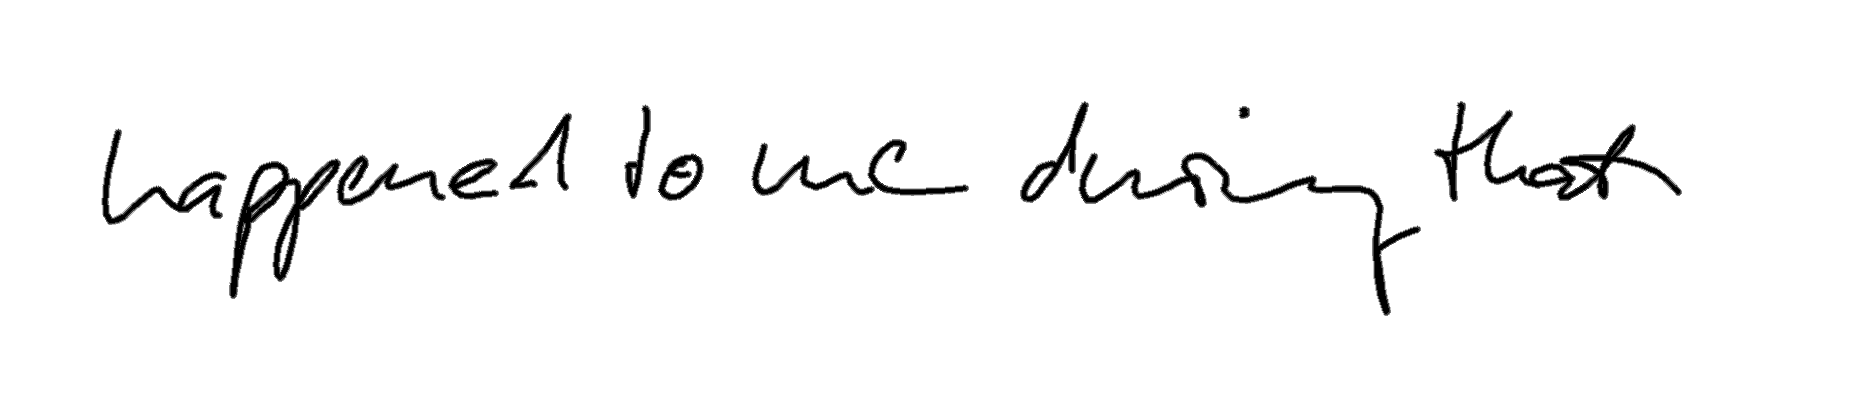 happened to me during that